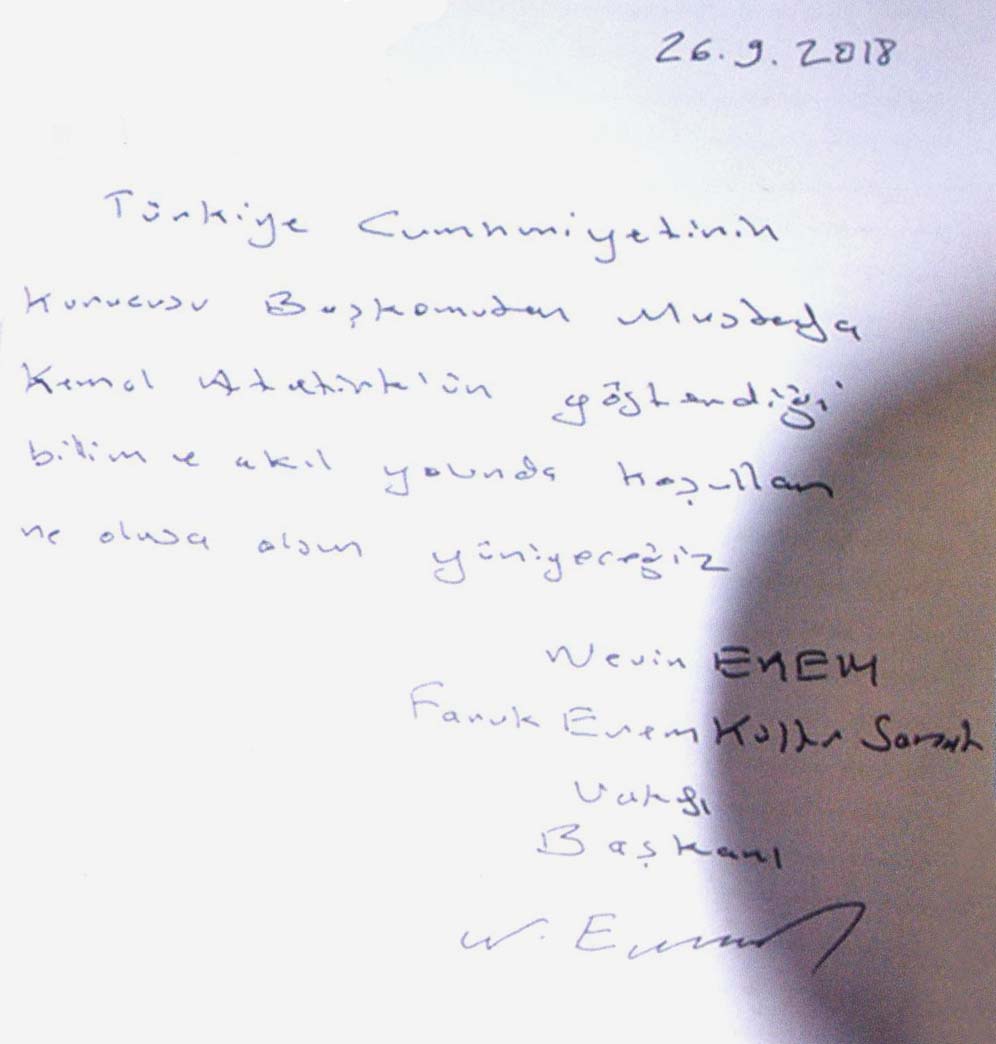 26.9.2018
Türkiye Cumhuriyetinin
kurucusu Başkomutan Mustafa
Kemal Atatürk'ün gösterdiği
bilim ve akıl yolunda koşulları
ne olursa olsun yürüyeceğiz
Nevin EREM
Faruk Erem Kültür Sanat
Vakfı
Başkanı
N. Erem